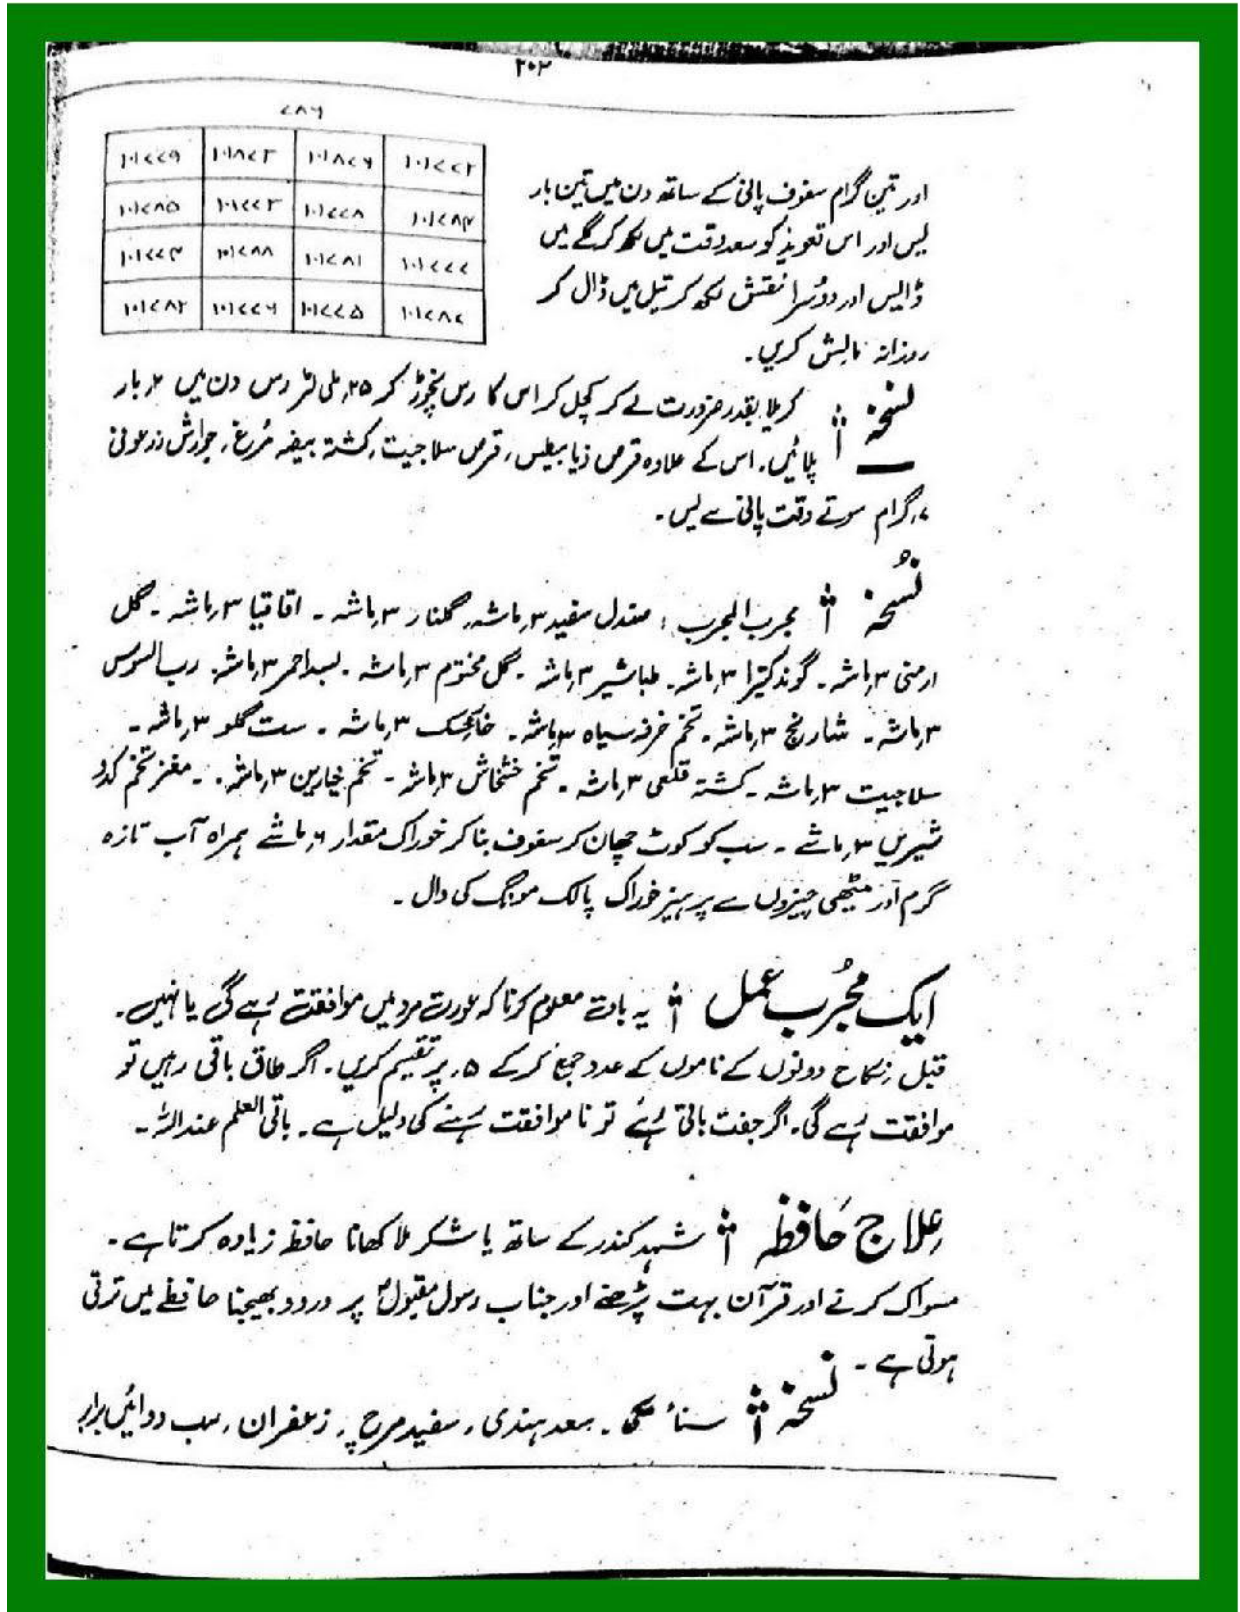 ۲۰۳
۷۸۶
۱۰۱۷۷۹ ۱۰۱۸۷۳ ۱۰۱۸۷۶ ۱۰۱۷۷۲
۱۰۱۷۸۵ ۱۰۱۷۷۳ ۱۰۱۷۷۸ ۱۰۱۷۸۴
۱۰۱۷۷۴ ۱۰۱۷۸۸ ۱۰۱۷۸۱ ۱۰۱۷۷۷
۱۰۱۷۸۲ ۱۰۱۷۷۶ ۱۰۱۷۷۵ ۱۰۱۷۸۷
اور تین گرام سفوف پانی کے ساتھ دن میں تین بار
لیں اور اس تعویذ کو سعد وقت میں لکھ کر گلے میں
ڈالیں اور دوسرا نقش لکھ کر تیل میں ڈال کر
روزانہ مالش کریں۔
نسخہ کریلا بقدر ضرورت لے کر کچل کر اس کا رس نچوڑ کر ۲۵ ملی لٹر رس دن میں بار
پلائیں۔ اس کے علاوہ قرص ذیابیطس، قرص سلاجیت، کشتہ بیضہ مرغ، جوارش زرعونی
۷ گرام سوتے وقت پانی سے لیں۔
نُسخہ مجرب المجرب: صندل سفید ۳ ماشہ، گلنار ۳ ماشہ۔ اقاقیا ۳ ماشہ۔ گل
ارمنی ۳ ماشہ۔ گوند کتیرا ۳ ماشہ۔ طباشیر ۳ ماشہ۔ گل مختوم ۳ ماشہ۔ بسد احمر ۳ ماشہ۔ رب السوس
۳ ماشہ۔ شادنج ۳ ماشہ۔ تخم خرفہ سیاہ ۳ ماشہ۔ خارخسک ۳ ماشہ۔ ست گلو ۳ ماشہ۔
سلاجیت ۳ ماشہ۔ کشتہ قلعی ۳ ماشہ۔ تخم خشخاش ۳ ماشہ۔ تخم خیارین ۳ ماشہ۔ مغز تخم کدو
شیریں ۳ ماشے۔ سب کو کوٹ چھان کر سفوف بنا کر خوراک مقدار ۶ ماشے ہمراہ آب تازہ
گرم اور میٹھی چیزوں سے پرہیز خوراک پالک مونگ کی دال۔
ایک مجُرب عمل یہ بات معلوم کرنا کہ عورت مرد میں موافقت رہے گی یا نہیں۔
قبل نکاح دونوں کے ناموں کے عدد جمع کر کے ۵ پر تقسیم کریں۔ اگر طاق باقی رہیں تو
موافقت رہے گی۔ اگر جفت باقی رہے تو نا موافقت رہنے کی دلیل ہے۔ باقی العلم عنداللہ۔
علاج حَافظہ شہد کندر کے ساتھ یا شکر ملا کھانا حافظہ زیادہ کرتا ہے۔
مسواک کرنے اور قرآن بہت پڑھنے اور جناب رسول مقبولؐ پر درود بھیجنا حافظے میں ترقی
ہوتی ہے۔
نسخہ سناء مکی۔ سعد ہندی، سفید مرچ، زعفران، سب دوائیں برابر